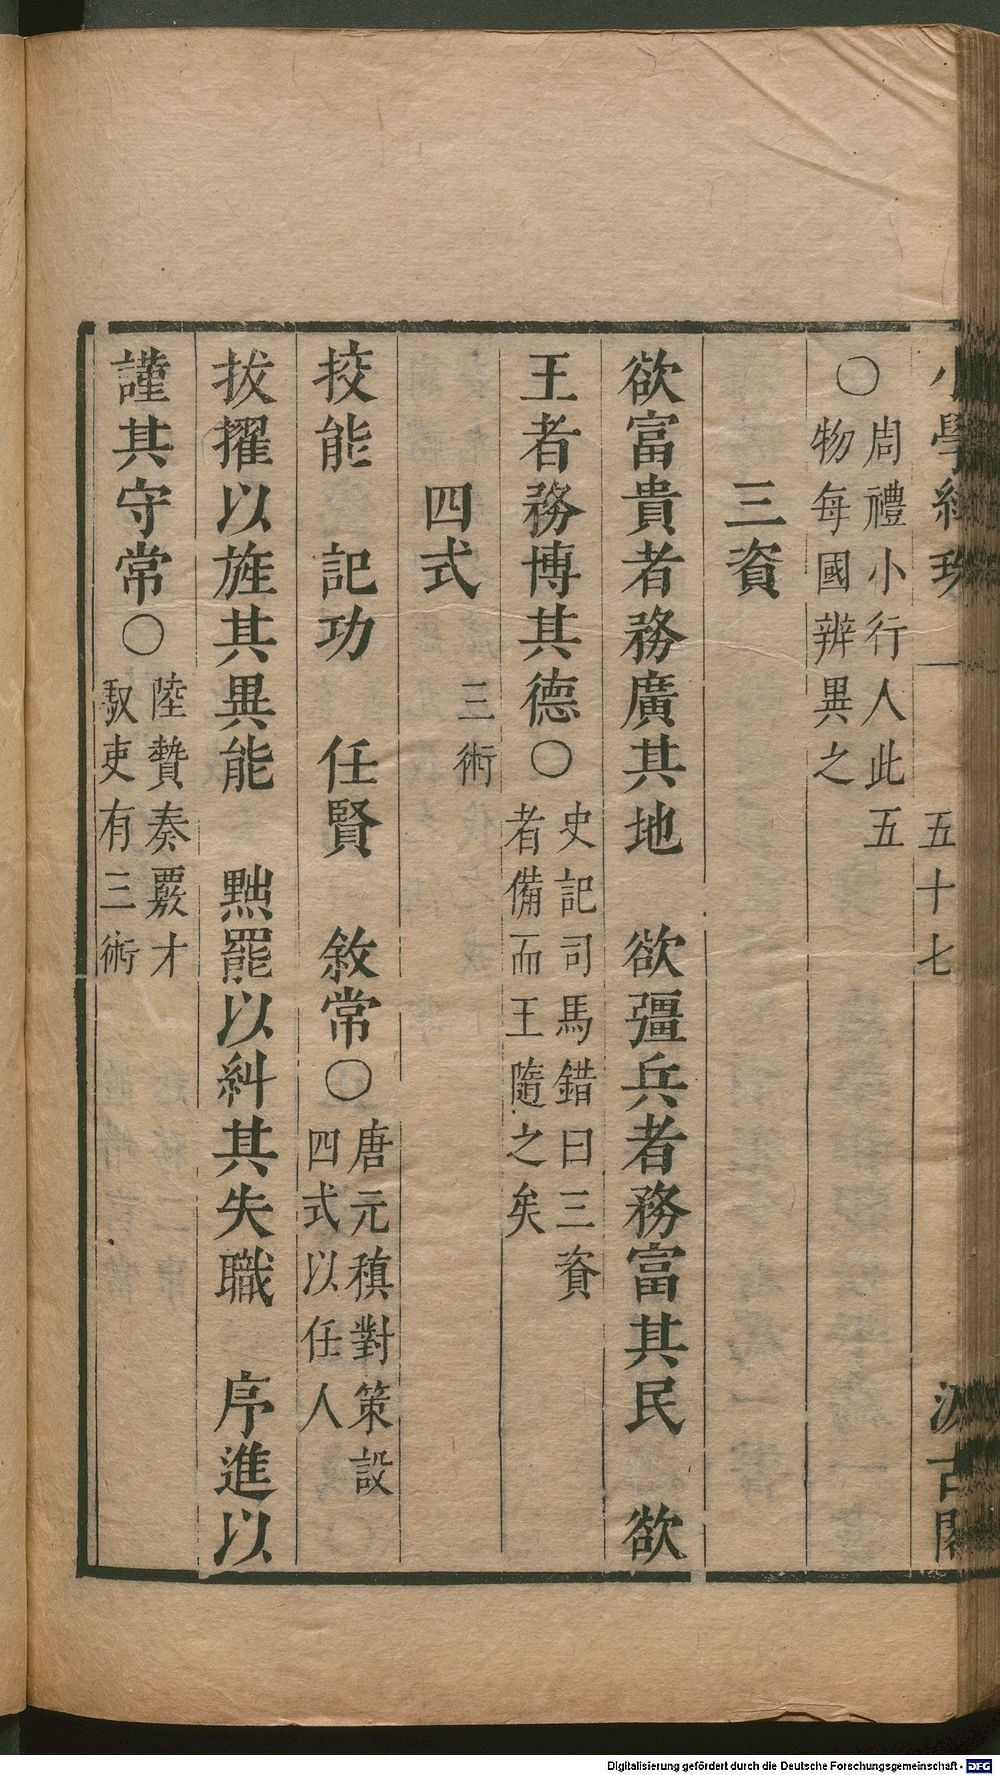 小學紺珠 一 五十七 汲古閣
○周禮小行人此五
物每國辨異之
三資
欲富貴者務廣其地 欲彊兵者務富其民 欲
王者務博其德○史記司馬錯曰三資
者備而王隨之矣
四式 三術
挍能 記功 任賢 敘常○唐元稹對策設
四式以任人
拔擢以旌其異能 黜罷以糾其失職 序進以
謹其守常○陸贄奏覈才
馭吏有三術
Digitalisierung gefördert durch die Deutsche Forschungsgemeinschaft - DFG